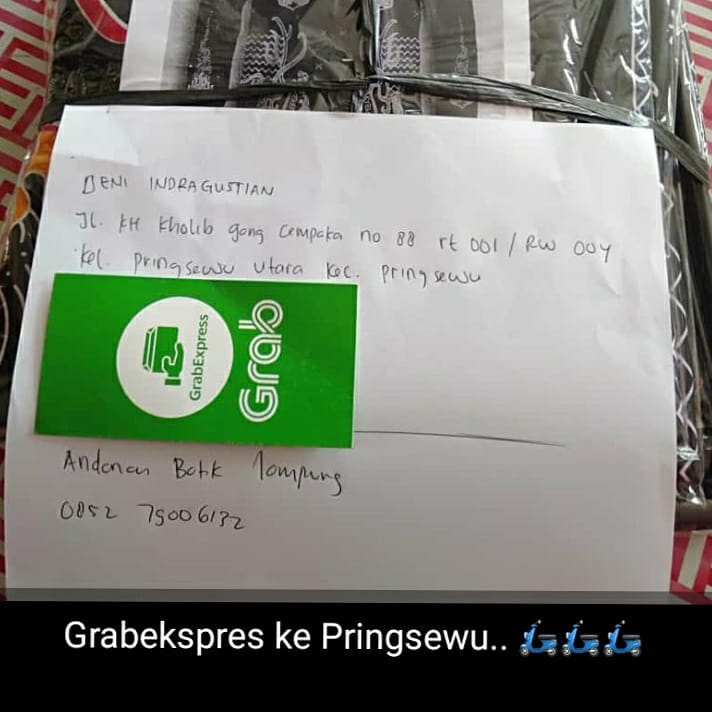 DENI INDRAGUSTIAN
Jl. KH Kholib gang Cempaka no 88 rt 001 / RW 004
kel. Pringsewu Utara kec. Pringsewu
GrabExpress
Grab
Andanan Batik Lampung
0852 79006132
Grabekspres ke Pringsewu.. 🛵🛵🛵